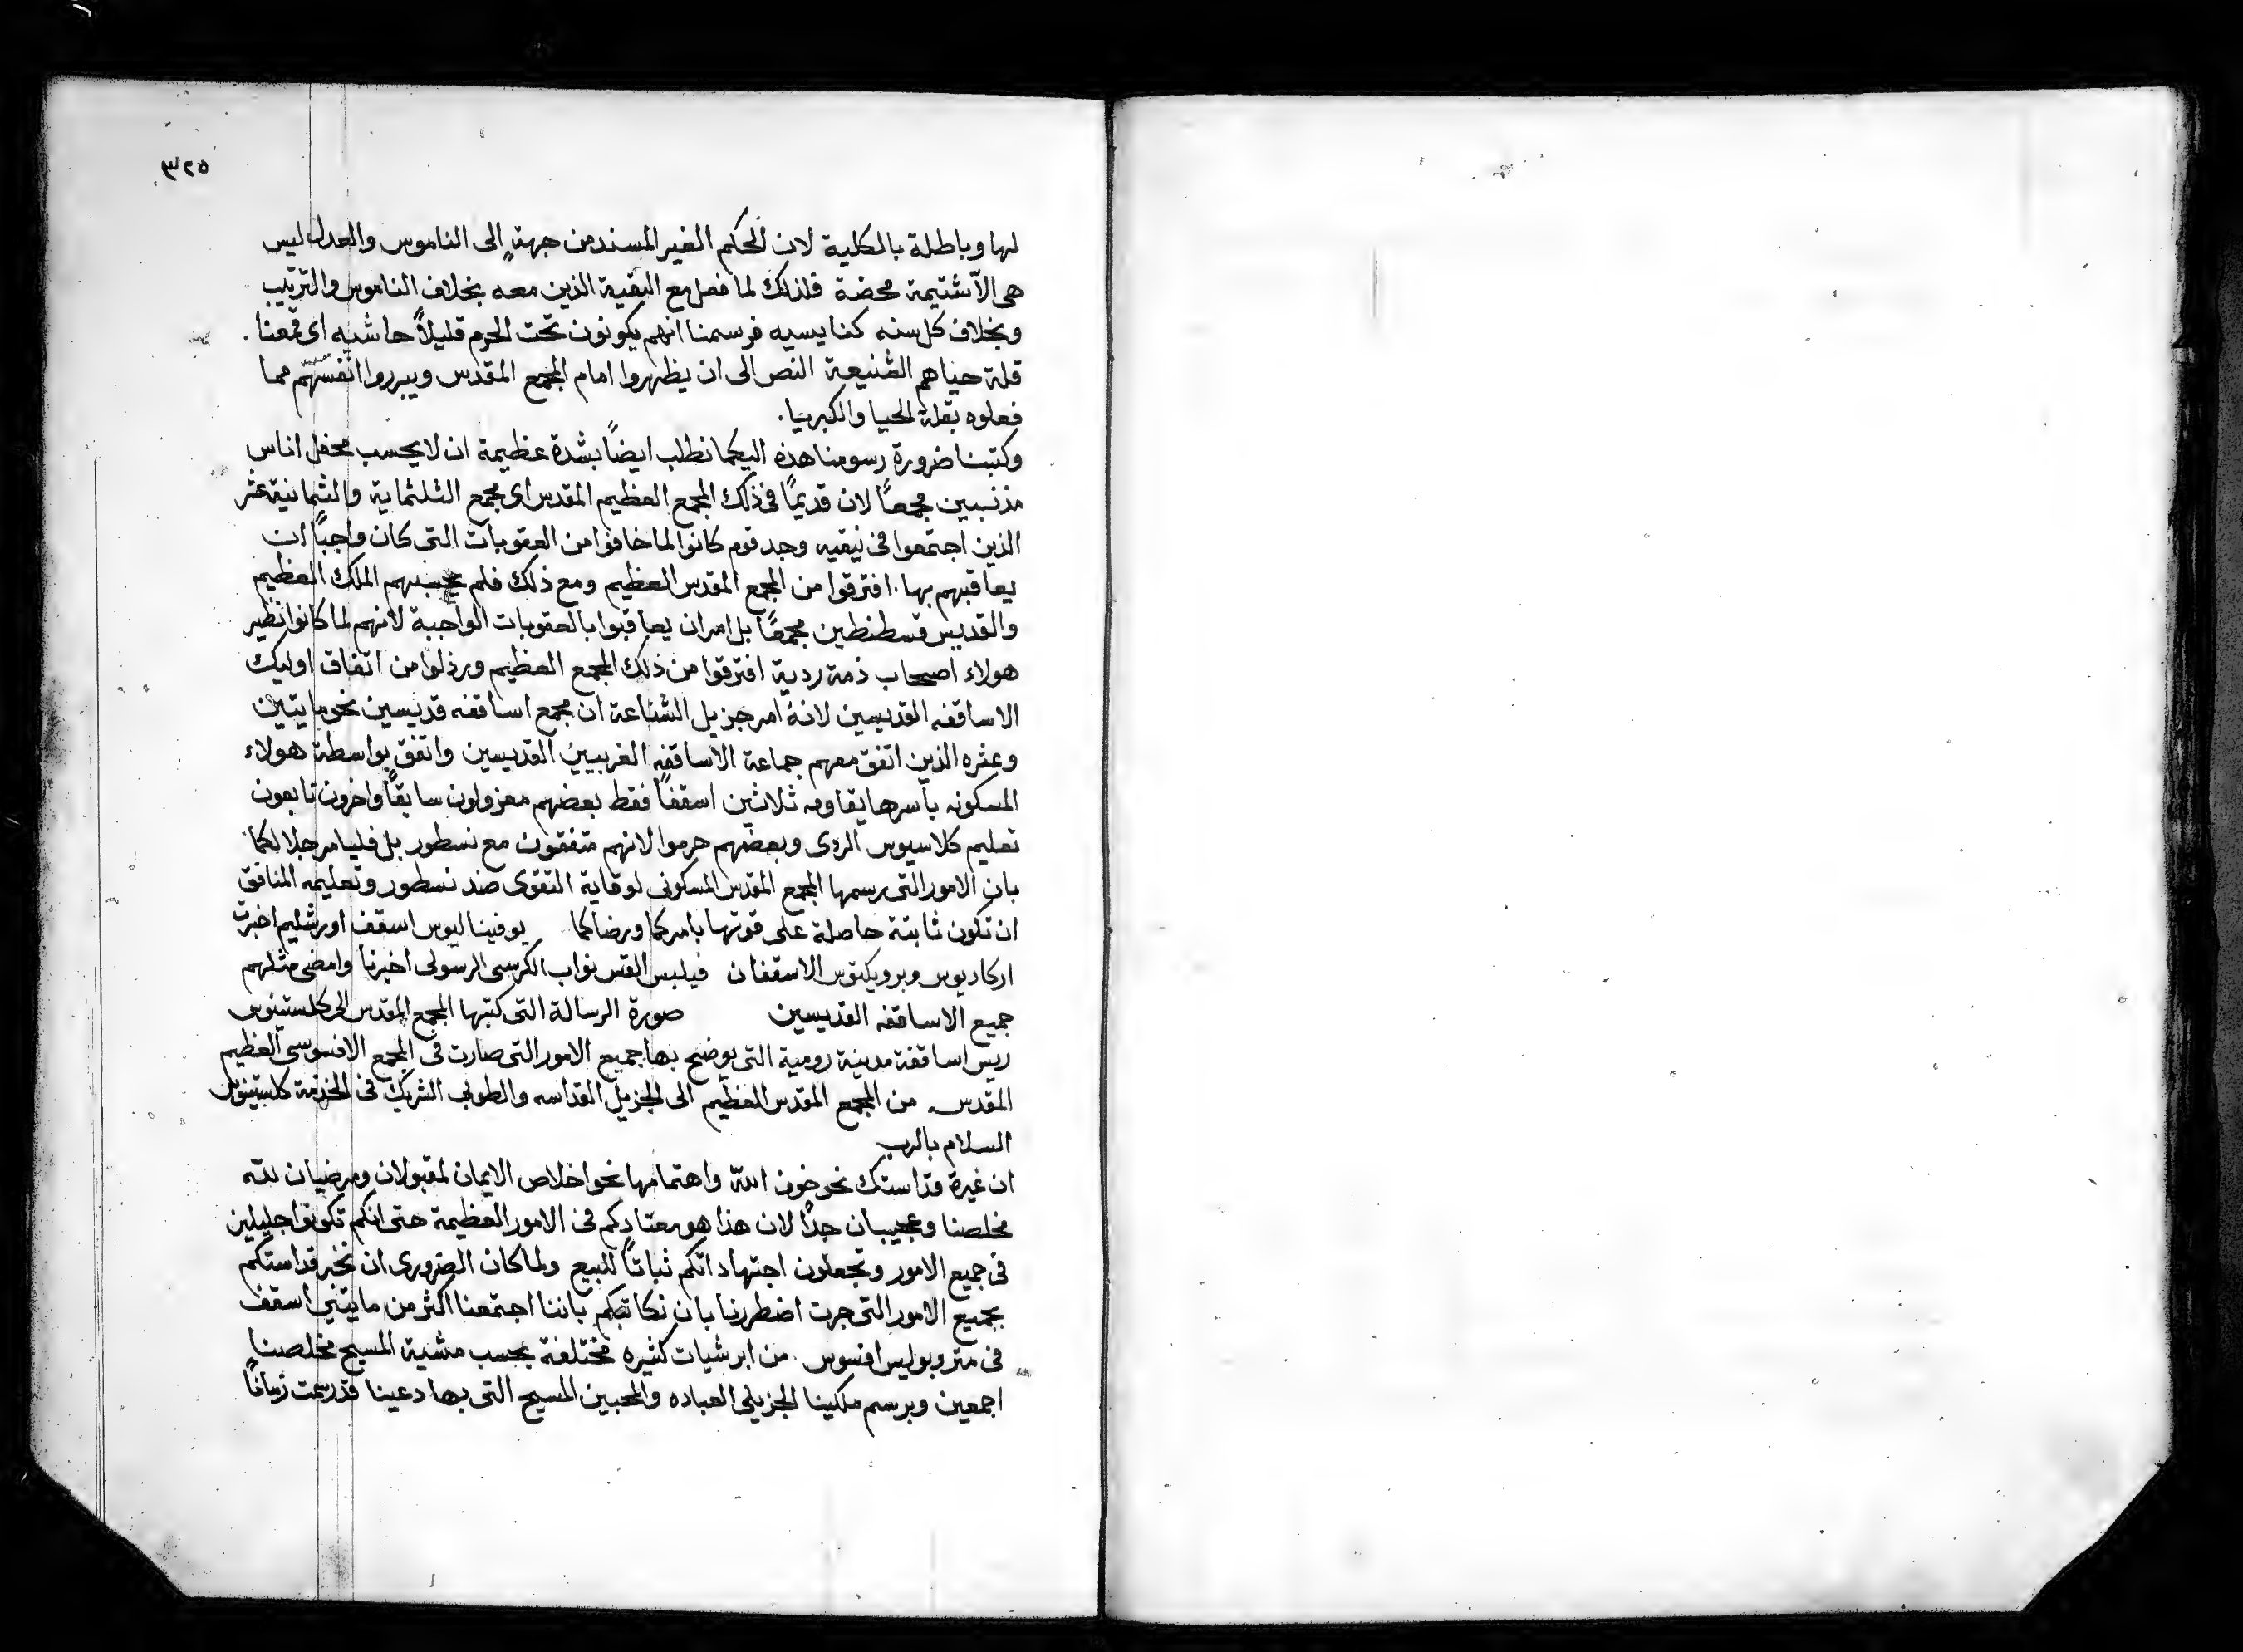 ٣٢٥
لها وباطلة بالكلية لان الحكم الغير المسند من جهةٍ الى الناموس والعدل ليس
هى الآشتيمة محضة فلذلك لما فعل مع البقية الذين معه بخلاف الناموس والترتيب
وبخلاف كل سنه كنايسيه فرسمنا انهم يكونون تحت الحرم قليلاً حاشيه اى قمعنا
قلة حياهم الشنيعة النص الى ان يظهروا امام المجمع المقدس ويبرروا انفسهم مما
فعلوه بقلة الحيا والكبريا.
وكتبنا ضرورة رسومنا هذه اليكما نطلب ايضاً بشدة عظيمة ان لا يحسب محفل اناس
مذنبين مجمعاً لان قديمًا فى ذلك المجمع العظيم المقدس اى مجمع الثلثماية والثمانية عشر
الذين اجتمعوا فى نيقيه وجد قوم كانوا لما خافوا من العقوبات التى كان واجبًا ان
يعاقبهم بها. افترقوا من المجمع المقدس العظيم ومع ذلك فلم يحسبهم الملك العظيم
والقديس قسطنطين مجمعًا بل امر ان يعاقبوا بالعقوبات الواجبة لانهم لما كانوا نظير
هولاء اصحاب ذمة ردية افترقوا من ذلك المجمع العظيم ورذلوا من اتفاق اوليك
الاساقفه القديسين لانهُ امر جزيل الشناعة ان مجمع اساقفه قديسين نحو مايتين
وعشره الذين اتفق معهم جماعة الاساقفه الغربيين القديسين واتفق بواسطة هولاء
المسكونه باسرها يقاومه ثلاثين اسقفًا فقط بعضهم معزولون سابقًا واخرون تابعون
تعليم كلاسيوس الردى وبعضهم حرموا لانهم متفقون مع نسطور بل فليامر جلالكما
بان الامور التى رسمها المجمع المقدس المسكونى لوقاية التقوى ضد نسطور وتعليمه المنافق
ان تكون ثابتة حاصلة على قوتها بامركما ورضاكما يوفيناليوس اسقف اورشليم اخبرت
اركاديوس وبرويكتوس الاسقفان فيلبس القس نواب الكرسى الرسولى اخبرنا وامضى مثلهم
جميع الاساقفه القديسين صورة الرسالة التى كتبها المجمع المقدس الى كلستينوس
ريس اساقفة مدينة رومية التى يوضح بها جميع الامور التى صارت فى المجمع الافسوسى العظيم
المقدس. من المجمع المقدس العظيم الى الجزيل القداسه والطوبى الشريك فى الخدمة كلستينوس
السلام بالرب
ان غيرة قداستك نحو خوف الله واهتمامها نحو اخلاص الايمان لمقبولان ومرضيان لله
مخلصنا وعجيبان جدًا لان هذا هو معتادكم فى الامور العظيمة حتى انكم تكونوا جليلين
فى جميع الامور وتجعلون اجتهاداتكم ثباتًا للبيع ولما كان الضرورى ان نخبر قداستكم
بجميع الامور التى جرت اضطررنا بان نكاتبكم باننا اجتمعنا اكثر من مايتنى اسقف
فى متروبوليس افسوس. من ابرشيات كثيره مختلفة بحسب مشية المسيح مخلصنا
اجمعين وبرسم ملكينا الجزيلى العباده والمحبين المسيح التى بها دعينا قد رسمت زمانًا